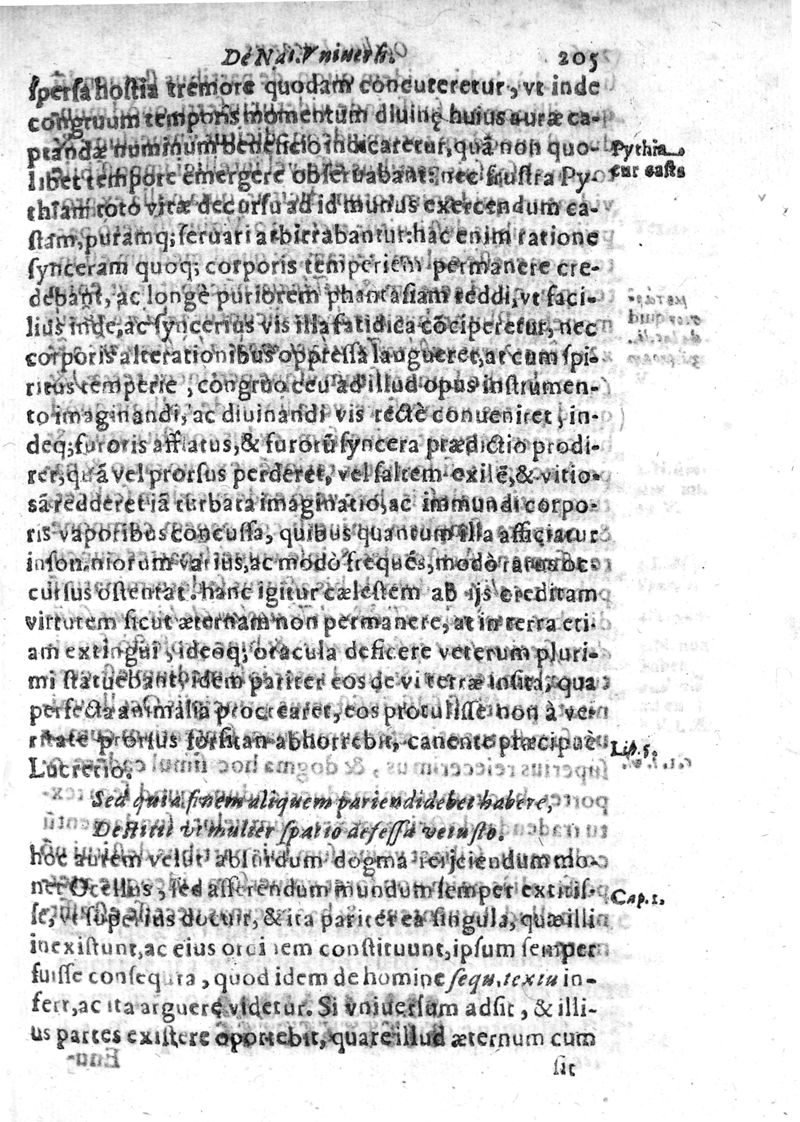 De Nat. Vniuersi. 205
spersa hostia tremore quodam concuteretur, vt inde
congruum temporis momentum diuinę huius auræ ca-
ptandæ numinum beneficio indicaretur, quā non quo-
libet tempore emergere obseruabant: nec frustra Py-
Pythia
cur casta
thiam toto vitæ decursu ad id munus exercendum ca-
stam, puramq; seruari arbitrabantur: hac enim ratione
synceram quoq; corporis temperiem permanere cre-
debant, ac longè puriorem phantasiam reddi, vt faci-
lius inde, ac syncerius vis illa fatidica cōciperetur, nec
corporis alterationibus oppressa langueret, at cum spi-
ritus temperie, congruo ceu ad illud opus instrumen-
to imaginandi, ac diuinandi vis rectè conueniret, in-
deq; furoris afflatus, & furorū syncera prædictio prodi-
ret, quā vel prorsus perderet, vel saltem exilē, & vitio-
sā redderet iā turbata imaginatio, ac immundi corpo-
ris vaporibus concussa, quibus quantum illa afficiatur
insomniorum varius, ac modò frequēs, modò rarus oc
cursus ostentat. hanc igitur cælestem ab ijs creditam
virtutem sicut æternam non permanere, at in terra eti-
am extingui, ideoq; oracula deficere veterum pluri-
mi statuebant, idem pariter eos de vi terræ insita, qua
perfecta animalia procrearet, eos protulisse non à ve-
ritate prorsus forsitan abhorrebit, canente præcipuè
Lib. 5.
Lucretio.
Sed quia finem aliquem pariendi debet habere,
Destitit vt mulier spatio defessa vetusto.
hoc autem velut absurdum dogma reijciendum mo-
net Ocellus, sed asserendum mundum semper extitis-
Cap. 1.
se, vt superius docuit, & ita pariter ea singula, quæ illi
inexistunt, ac eius ordinem constituunt, ipsum semper
fuisse consequta, quod idem de homine sequ. textu in-
fert, ac ita arguere videtur. Si vniuersum adsit, & illi-
us partes existere oportebit, quare illud æternum cum
sit